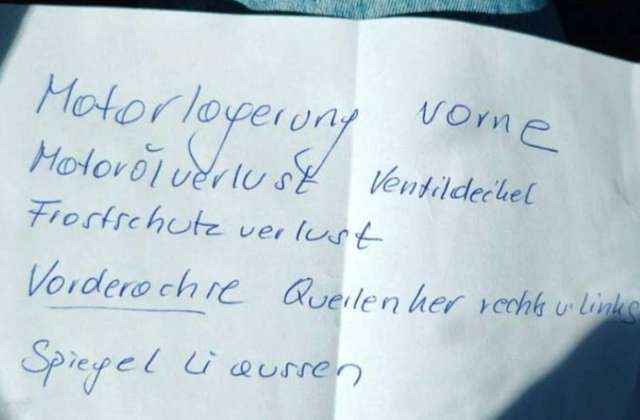 Motorlagerung vorne
Motorölverlust Ventildeckel
Frostschutzverlust
Vorderachse Querlenker rechts u. links
Spiegel li aussen